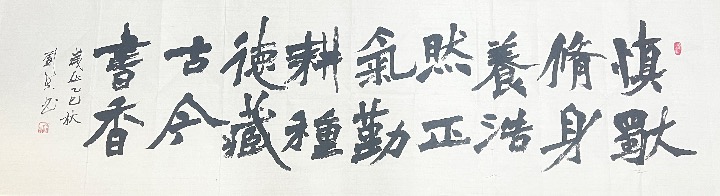 慎獨
脩身
養浩
然正
氣勤
耕種
徳藏
古今
書香
歲在乙巳秋